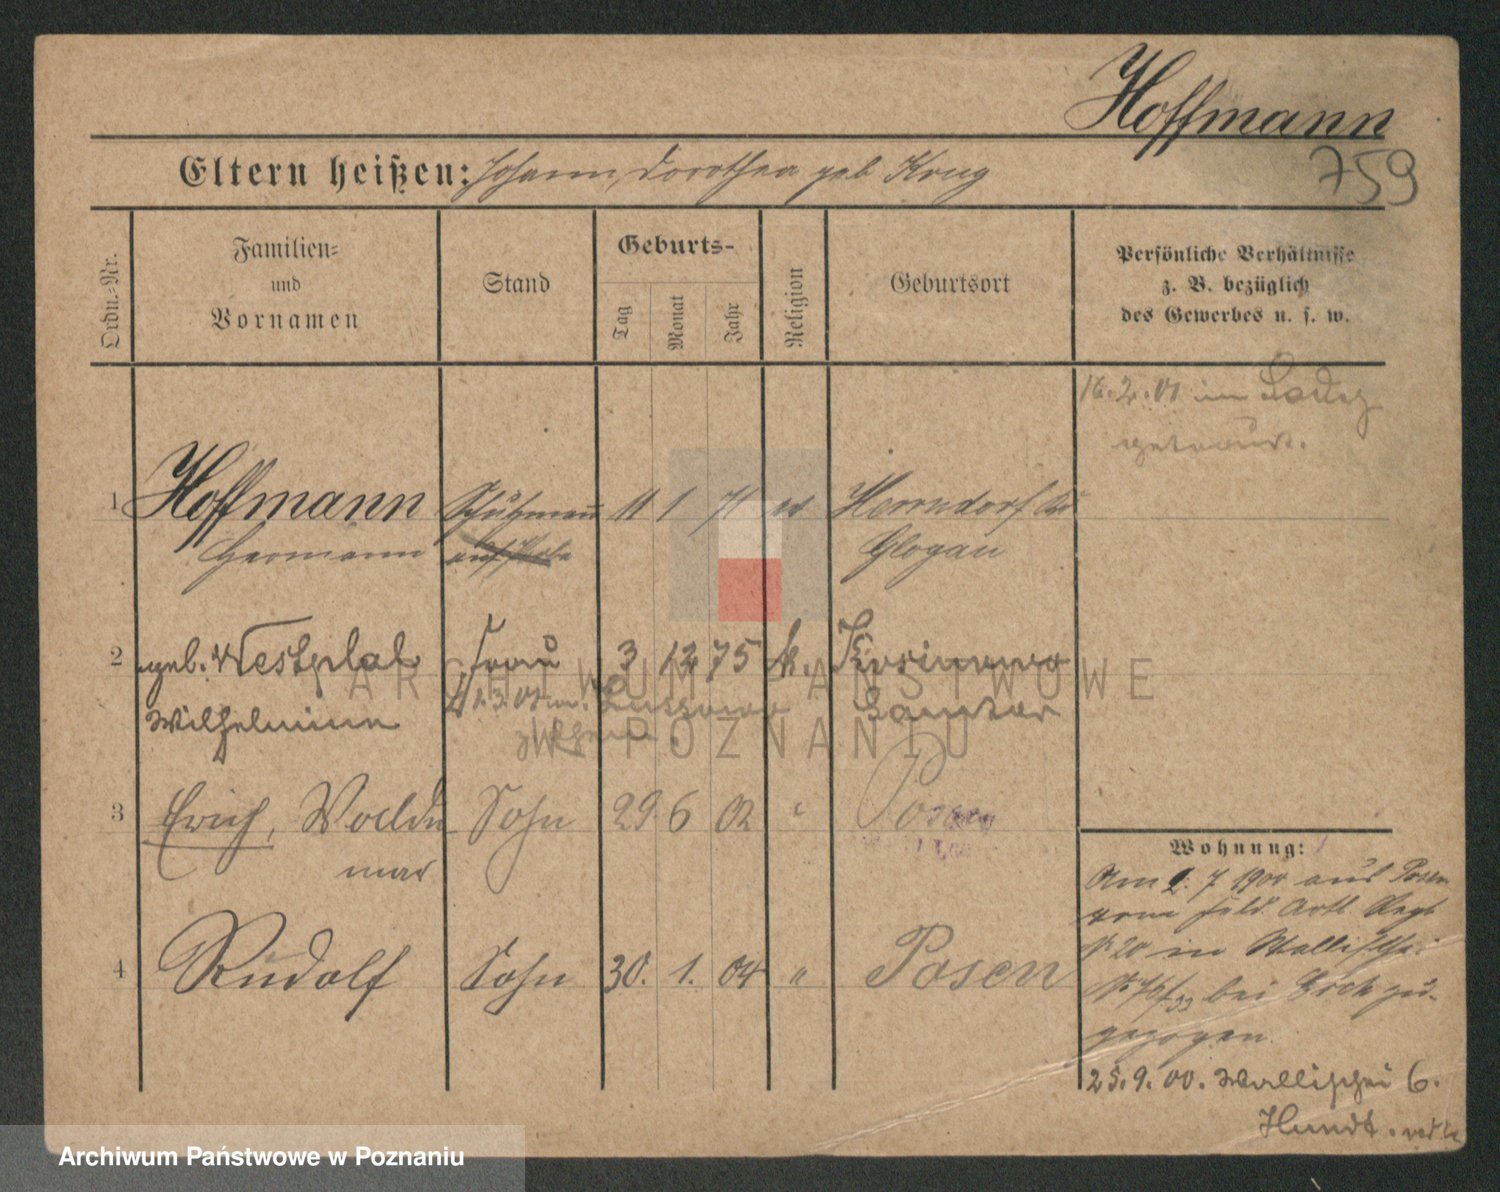 Hoffmann
759
Eltern heißen: Johann, Dorothea geb Krug
Ordn.-Nr.
Familien-
und
Vornamen
Stand
Geburts-
Tag
Monat
Jahr
Religion
Geburtsort
Persönliche Verhältnisse
z. B. bezüglich
des Gewerbes u. s. w.
16.2.01 in
getraut.
1 Hoffmann Schutzmann 11 1 71 ev Herrndorf Kr
Hermann Glogau
2 geb. Westphal Frau 3 12 75 k.
Wilhelmine Samter
3 Erich, Woldе Sohn 29 6 02 " Posen
mar
4 Rudolf Sohn 30. 1. 04 " Posen
Wohnung:
Am 2. 7 1900 aus Posen
vom Feld Artl Regt
N 20 in Wallischei
bei zu-
gezogen.
25.9.00. Wallischei 6.
Hundt.
ARCHIWUM PAŃSTWOWE
W POZNANIU
Archiwum Państwowe w Poznaniu